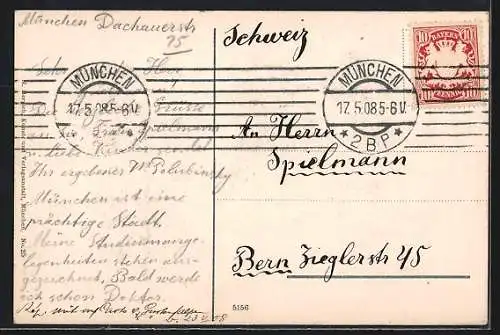 München Dachauerstr
95
Sehr
Die Grüsse
an Sie, Frau Spielmann
u. liebe Kinder sendet
Ihr ergebener W. Polubinsky
München ist eine
prächtige Stadt,
Meine Studienange-
legenheiten stehen aus-
gezeichnet. Bald werde
ich schon Doktor.
Schweiz
MÜNCHEN
17.5.08 5-6 V.
MÜNCHEN
17.5.08 5-6 V.
* 2 B.P. *
BAYERN
10 10
10 PFENNIG 10
An Herrn
Spielmann
Bern Zieglerstr 45
5156